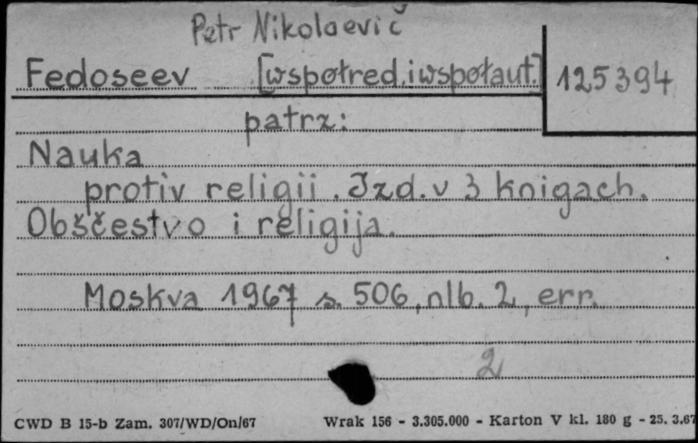 Petr Nikolaevič
Fedoseev [współred. i współaut.] 125394
patrz:
Nauka
protiv religii. Izd. v 3 knigach.
Obščestvo i religija.
Moskva 1967 s. 506, nlb. 2, err.
2
CWD B 15-b Zam. 307/WD/On/67 Wrak 156 - 3.305.000 - Karton V kl. 180 g - 25. 3.67